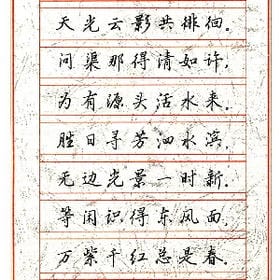 天光云影共徘徊。
问渠那得清如许，
为有源头活水来。
胜日寻芳泗水滨，
无边光景一时新。
等闲识得东风面，
万紫千红总是春。